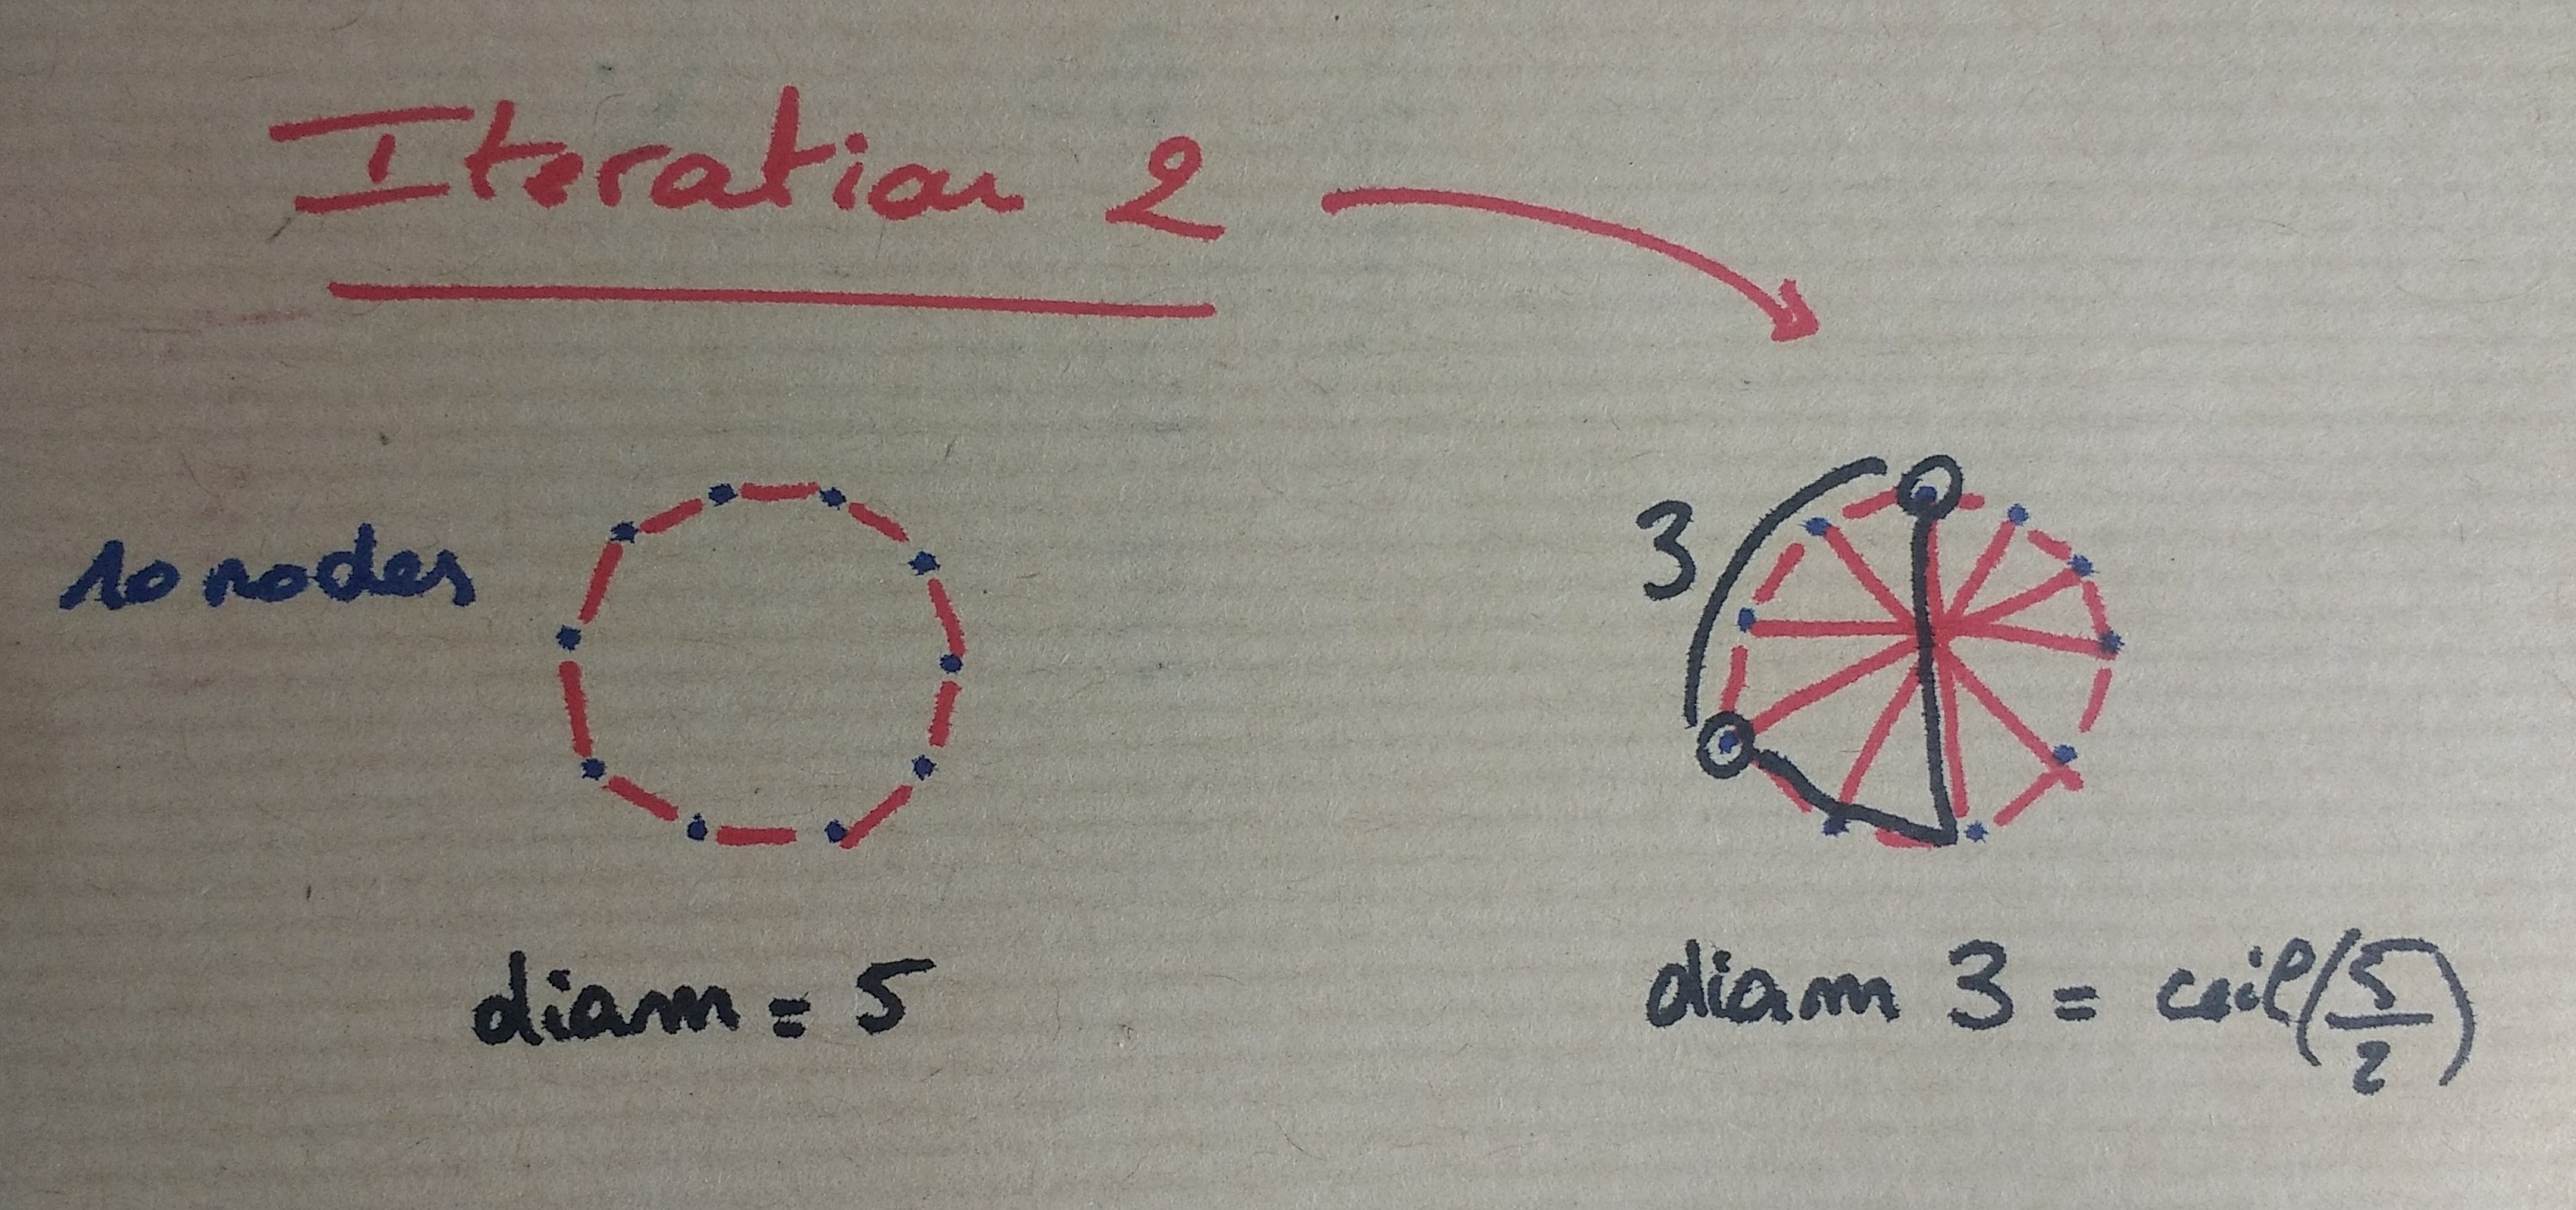 Iteration 2
10 nodes
3
diam = 5
diam 3 = ceil(5/2)